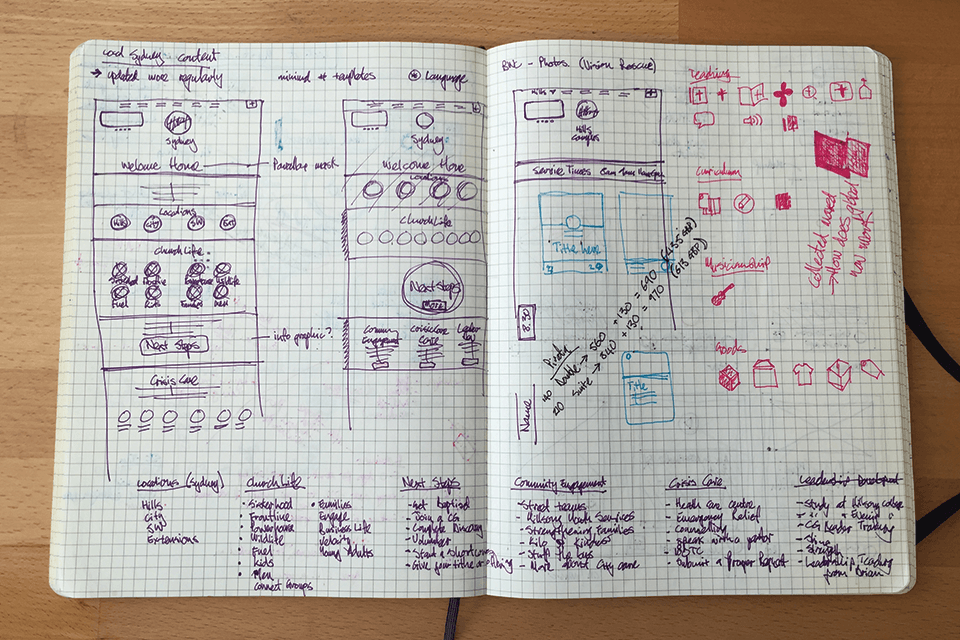 Load Sydney content
→ updated more regularly
minimal # templates
Language
Sydney
Welcome Home
Parallax mask
Locations
Hills
City
SW
Ext
Church Life
Sisterhood
Frontline
Powerhouse
Wildlife
Fuel
Kids
Families
Men
info graphic?
Next Steps
Crisis Care
Sydney
Welcome Home
Locations
Church Life
Next Steps
MORE
Community
Engagement
Crisis Care
Locations (Sydney)
Hills
City
SW
Extensions
Church Life
• Sisterhood
• Frontline
• Powerhouse
• Wildlife
• Fuel
• Kids
• Men
Connect Groups
• Families
• Engage
• Business Life
• Velocity
• Young Adults
Next Steps
- Get Baptised
- Join a CG
- Volunteer
- Start a short course
- Give your tithe or offering
- Photos (Vision Rescue)
Hills
Hills
Campus
Service Times
Title here
8.30
Name
Double → 560 + 130 = 690
Suite → 840 + 130 = 970
Title
Teaching
Curriculum
Musicianship
Goods
Collected world
→ How does
Community Engagement
- Street teams
- Hillsong Youth Services
- Strengthening Families
- Kilo of Kindness
- Stuff the bus
- More about City Care
Crisis Care
- Health care centre
- Emergency Relief
- Counselling
- Speak with a pastor
- Submit a Prayer Request
Leadership Development
- Study at Hillsong College
- CG Leader Training
- Shine
- Strength
- Leadership Teaching
from Brian